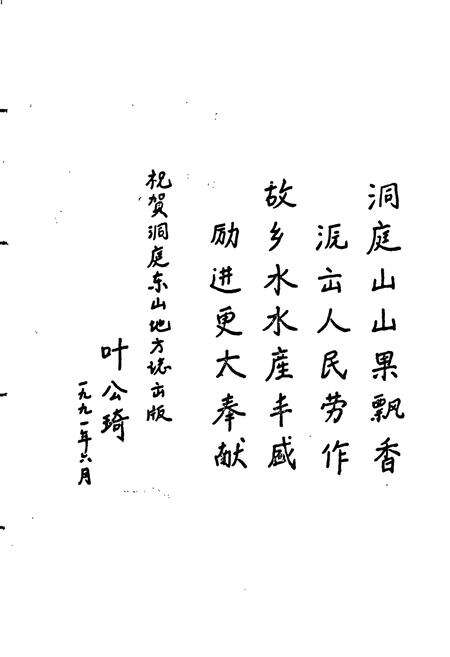 洞庭山山果飘香
人民劳作
故乡水水産丰盛
励进更大奉献
祝贺洞庭东山地方誌出版
叶公琦
一九九一年六月